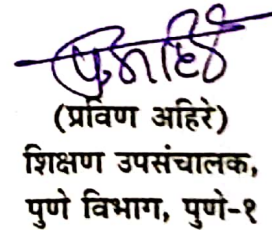 (प्रविण अहिरे)
शिक्षण उपसंचालक,
पुणे विभाग, पुणे-१